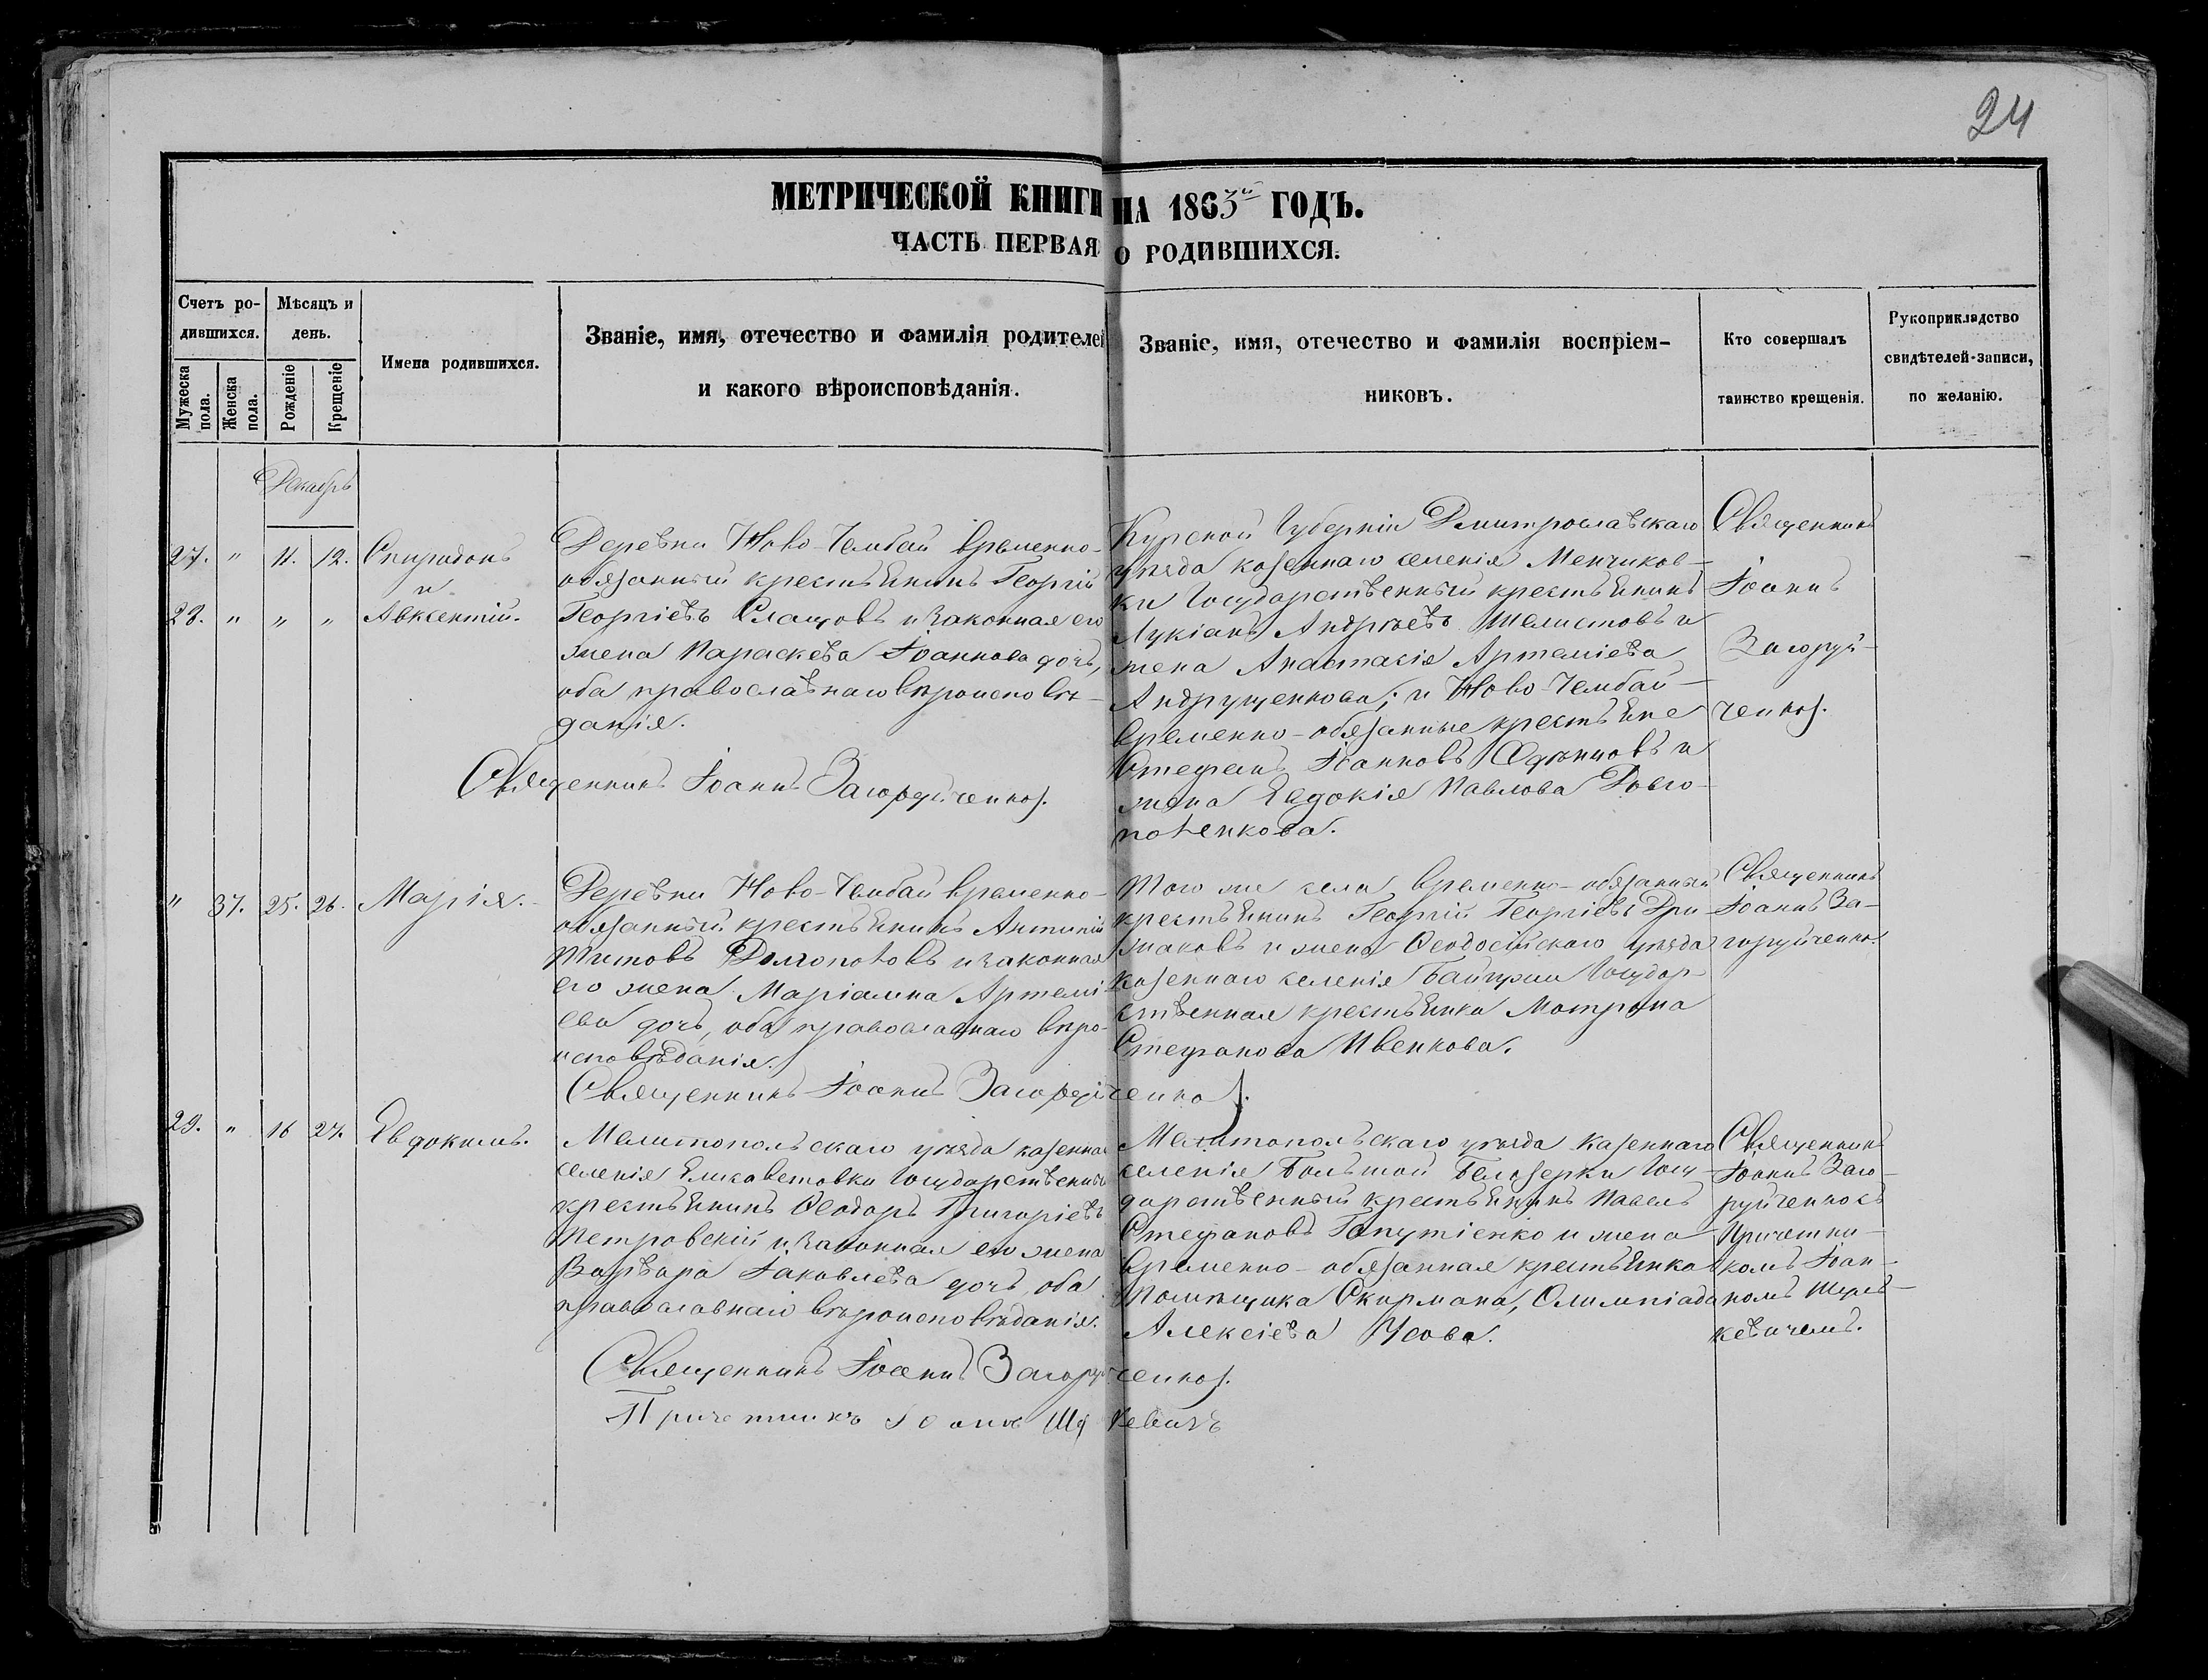 24
МЕТРИЧЕСКОЙ КНИГИ НА 1863й ГОДЪ.
ЧАСТЬ ПЕРВАЯ О РОДИВШИХСЯ.
Счетъ ро-
дившихся.
Мужеска
пола.
Женска
пола.
Мѣсяцъ и
день.
Рожденіе
Крещеніе
Имена родившихся.
Званіе, имя, отечество и фамилія родителей
и какого вѣроисповѣданія.
Званіе, имя, отечество и фамилія воспріем-
никовъ.
Кто совершалъ
таинство крещенія.
Рукоприкладство
свидѣтелей-записи,
по желанію.
Декабрь
27. " 11. 12. Спиридонъ
и
28. " " " Авксентій.
Деревни Ново-Чембай временно-
обязанный крестьянинъ Георгій
Георгіевъ Слащовъ и законная его
жена Параскева Іоаннова дочь,
оба православнаго вѣроисповѣ-
данія.
Священникъ Іоаннъ Загоруйченко.
Курской Губерніи Дмитрославскаго
уѣзда козеннаго селенія Менчиков-
ки Государственный крестьянинъ
Лукіанъ Андреевъ Шелистовъ и
жена Анастасія Артеміева
Андрущенкова; и Ново-Чембай-
временно-обязанные крестьяне
Стефанъ Іоанновъ и
жена Евдокія Павлова Долго-
потенкова.
Священникъ
Іоаннъ
Загоруй-
ченко.
" 37. 25. 26. Марія.
Деревни Ново-Чембай временно-
обязанный крестьянинъ Антоній
Титовъ Долгопотовъ и законная
его жена Маріамна Артемі-
ева дочь, оба православнаго вѣро-
исповѣданія.
Священникъ Іоаннъ Загоруйченко.
Того же села временно-обязанный
крестьянинъ Георгій Георгіевъ Дри-
жаковъ и жена Ѳеодосійскаго уѣзда
козеннаго селенія Государ-
ственная крестьянка Матрона
Стефанова Ивенкова.
Священникъ
Іоаннъ За-
горуйченко.
29. " 16 27. Евдокимъ.
Мелитопольскаго уѣзда казеннаго
селенія Елисаветовки Государственный
крестьянинъ Ѳеодоръ Григоріевъ
Петровскій и законная его жена
Варвара Іаковлева дочь, оба
православнаго вѣроисповѣданія.
Священникъ Іоаннъ Загоруйченко.
Причетникъ Іоаннъ
Мелитопольскаго уѣзда казеннаго
селенія Большой Белозерки Госу-
дарственный крестьянинъ Павелъ
Стефановъ Гапутіенко и жена
временно-обязанная крестьянка
Помѣщика Скирмана, Олимпіада
Алексіева Усова.
Священникъ
Іоаннъ Заго-
руйченко съ
Причетни-
комъ Іоан-
номъ
кевичемъ.